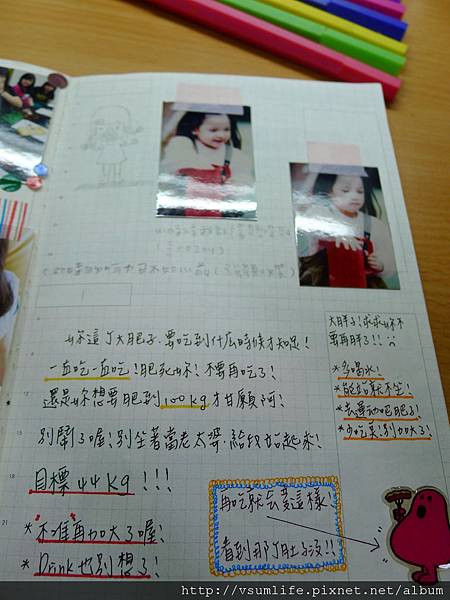 妳這個大肥子,要吃到什麼時候才知足!
一直吃一直吃!肥死妳!不要再吃了!
還是妳想要肥到100kg才甘願阿!
別鬧了喔!別坐著當老太婆,給我站起來!
目標44kg!!!
*不准再加大了喔!
*Drink也別想了!
大胖子!求求妳不要再胖了!!
*多喝水!
*能站就不坐!
*去運動吧肥子!
*少吃点!別加大了!
再吃就会變這樣!
看到那個肚子沒!!
http://vsumlife.pixnet.net/album